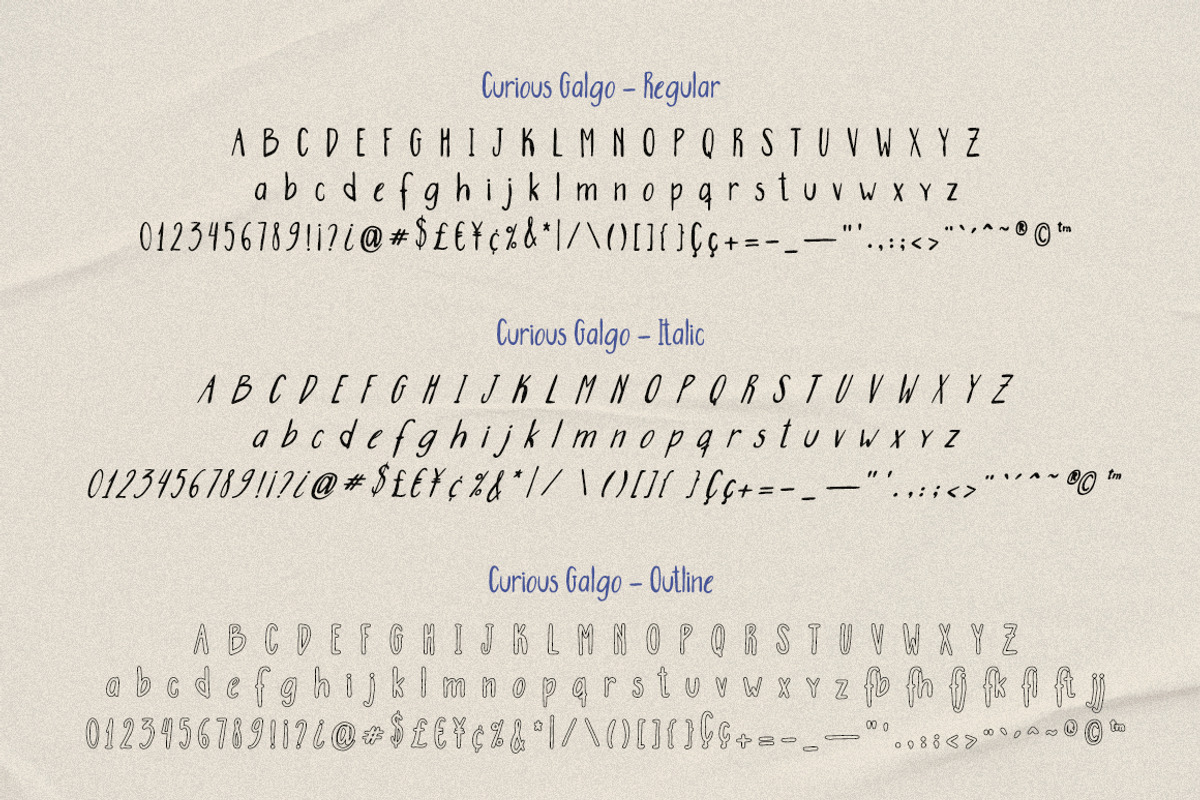 Curious Galgo – Regular
A B C D E F G H I J K L M N O P Q R S T U V W X Y Z
a b c d e f g h i j k l m n o p q r s t u v w x y z
0123456789!¡?¿@#$£€¥¢%&*|/\()[]{}Çç+=-_—"'.,:;<>¨`´^~®©™
Curious Galgo – Italic
A B C D E F G H I J K L M N O P Q R S T U V W X Y Z
a b c d e f g h i j k l m n o p q r s t u v w x y z
0123456789!¡?¿@#$£€¥¢%&*|/ \ ()[]{ }Çç+=-_ —"'.,:;<>¨`´^~®© ™
Curious Galgo – Outline
A B C D E F G H I J K L M N O P Q R S T U V W X Y Z
a b c d e f g h i j k l m n o p q r s t u v w x y z fb fh fj fk fl ft jj
0123456789!¡?¿@#$£€¥¢%&*|/\()[]{}Çç+=-_—"'.,:;<>¨`´^~®©™